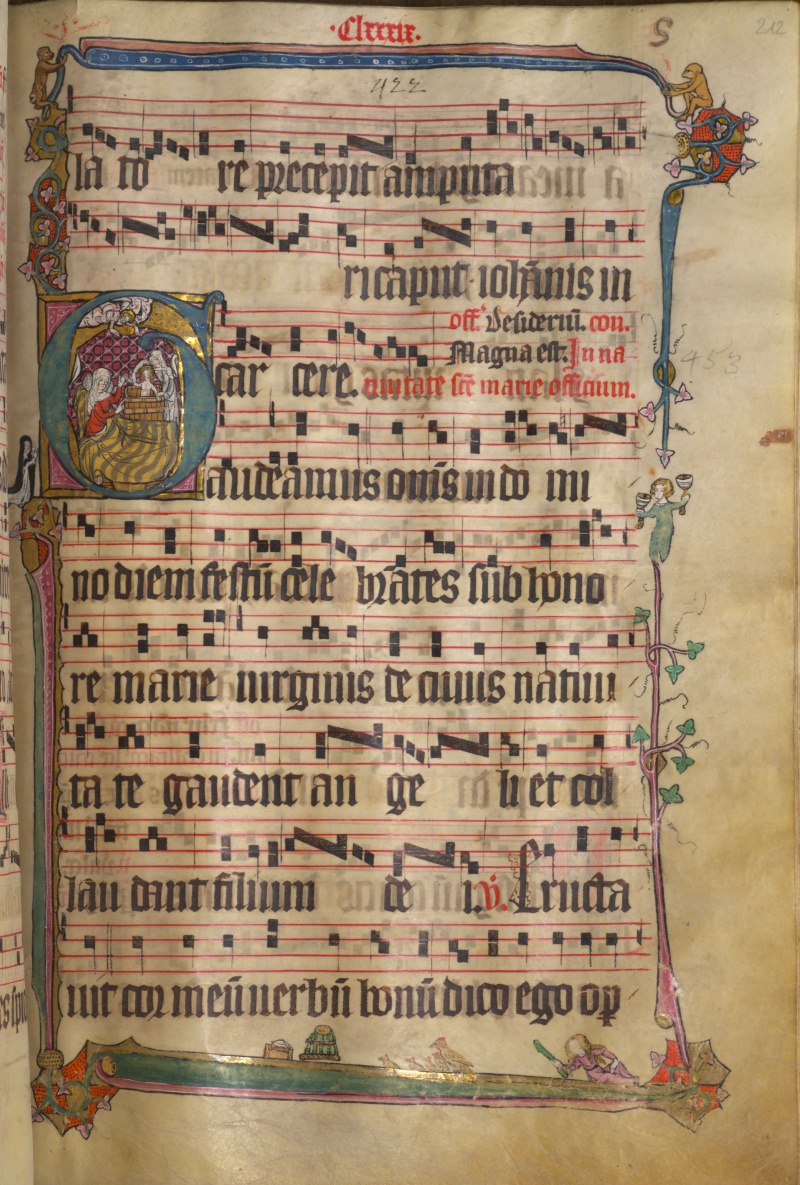 ·Clxxxix·
S
212
422
la to re precepit amputa
ri caput iohānis in
off̄ Desideriū. con.
Magna est. In na
453
car cere. tiuitate scē marie officium.
Gaudeamus om̄s in do mi
no diem festū cele brātes sub hono
re marie uirginis de cuius natiui
ta te gaudent an ge li et col
lau dant filium de i. ℣. Eructa
uit cor meū uerbū bonū dico ego oꝑ